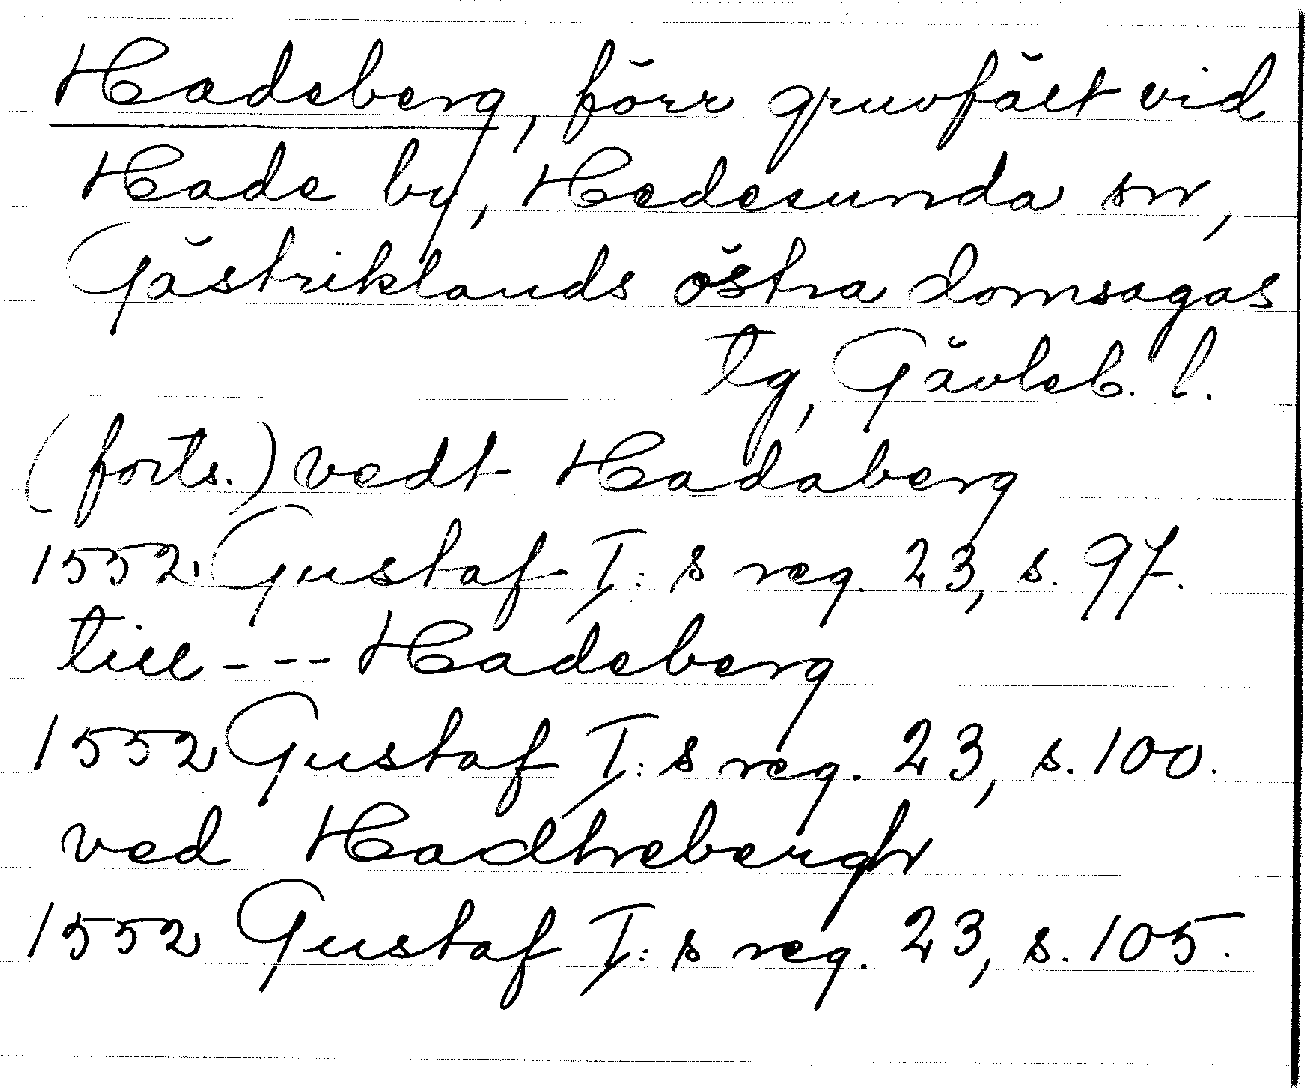 Hadeberg, förr gruvfält vid
Hade by, Hedesunda sn,
Gästriklands östra domsagas
tg, Gävleb. l.
(forts.) vedt Hadaberg
1552. Gustaf I:s reg. 23, s. 97.
till --- Hadeberg
1552 Gustaf I:s reg. 23, s. 100.
ved Hadhebergh
1552 Gustaf I:s reg. 23, s. 105.